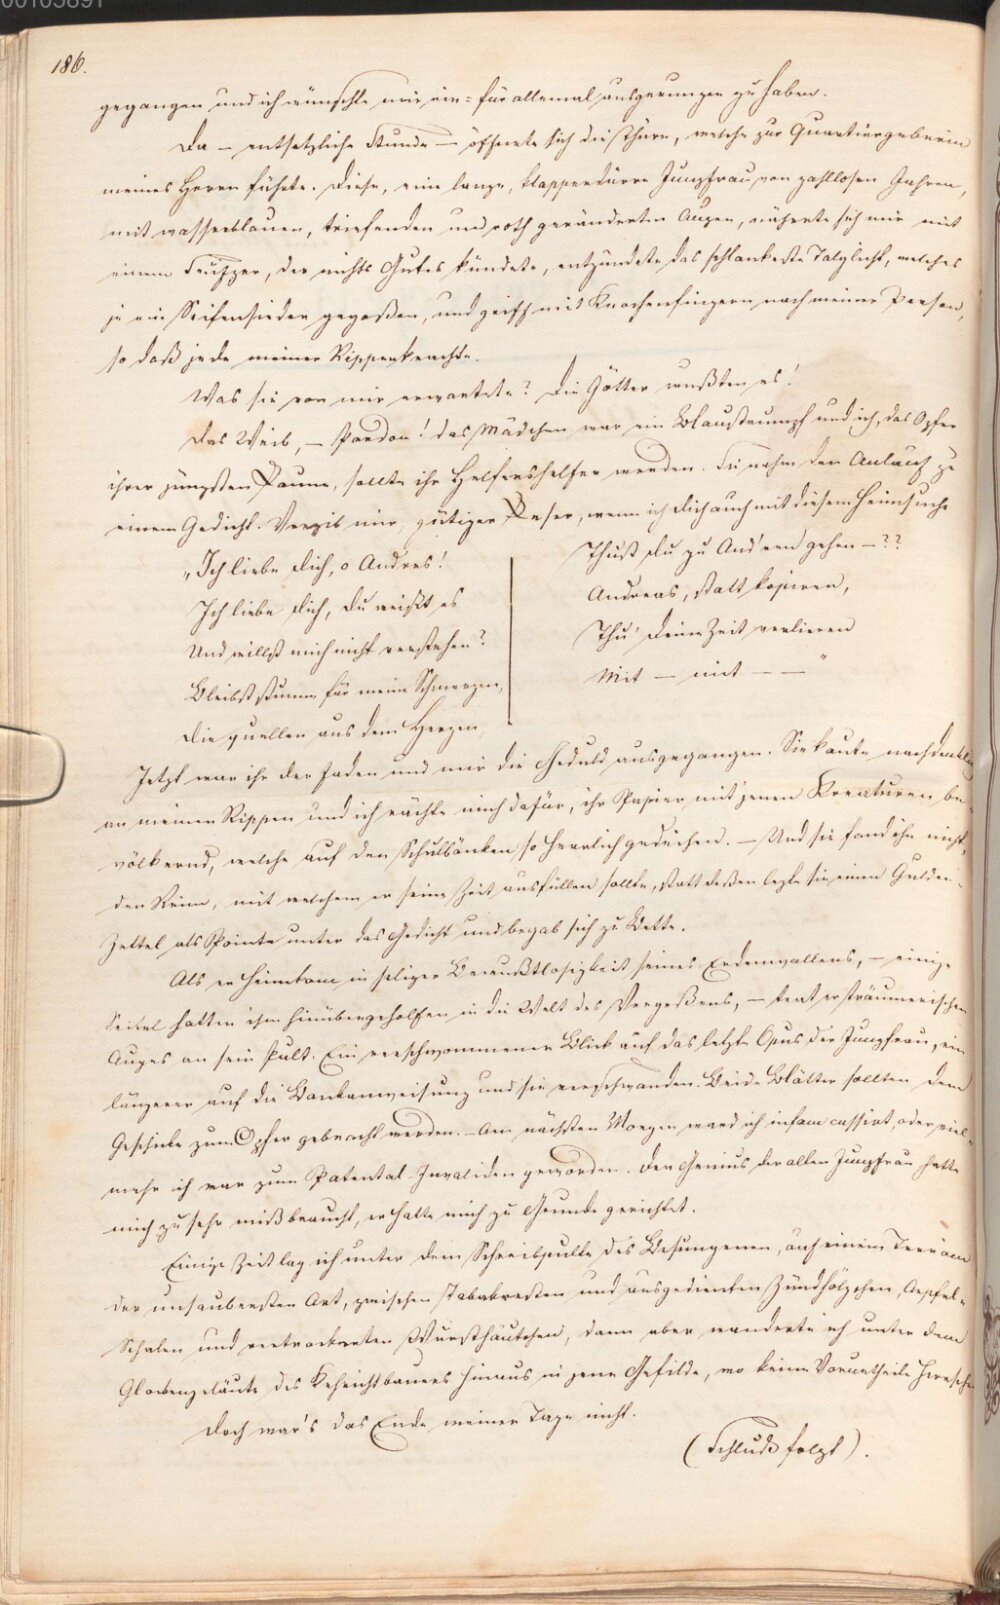 00105891
186.
gegangen und ich wünschte mir ein= für allemal ausgerungen zu haben.
Da – entsetzliche Stunde – öffnete sich die Thüre, welche zur Quartiergeberin
meines Herrn führte. Diese, eine lange, klapperdürre Jungfrau von zahllosen Jahren,
mit wasserblauen, triefenden und roth geränderten Augen, näherte sich mir mit
einem Seufzer, der nichts Gutes kündete, entzündete das schlankeste Talglicht, welches
je ein Seifensieder gegoßen, und griff mit Knochenfingern nach meiner Person,
so daß jede meiner Rippen krachte.
Was sie von mir erwartete? Die Götter wußten es!
Das Weib, – Pardon! das Mädchen war ein Blaustrumpf und ich, das Opfer
ihrer jüngsten Laune, sollte ihr Helfershelfer werden. Sie nahm den Anlauf zu
einem Gedicht. Verzeih mir, gütiger Leser, wenn ich Dich auch mit diesem heimsuche
„Ich liebe Dich, o Andres!
Ich liebe Dich, Du weißt es
Und willst mich nicht verstehen?
Bleibst stumm für meine Schmerzen,
Die quellen aus dem Herzen,
Thust Du zu And'ren gehen –??
Andreas, statt kopieren,
Thu' Deine Zeit verlieren
Mit – mit – –"
Jetzt war ihr der Faden und mir die Geduld ausgegangen. Sie kaute nachdenklich
an meinen Rippen und ich rächte mich dafür, ihr Papier mit jenen Kreaturen be=
völkernd, welche auf den Schulbänken so herrlich gedeihen. – Und sie fand ihn nicht,
den Reim, mit welchem er seine Zeit ausfüllen sollte, statt deßen legte sie einen Gulden=
Zettel als Pointe unter das Gedicht und begab sich zu Bette.
Als er heimkam in seliger Bewußtlosigkeit seines Erdenwallens, – einige
Seitel hatten ihm hinübergeholfen in die Welt des Vergeßens, – trat er träumerischen
Auges an sein Pult. Ein verschwommener Blick auf das letzte Opus der Jungfrau, ein
längerer auf die Bankanweisung und sie verschwanden. Beide Blätter sollten dem
Geschicke zum Opfer gebracht werden. – Am nächsten Morgen ward ich infam cassirt, oder viel=
mehr ich war zum Patental-Invaliden geworden. Der Genius der alten Jungfrau hatte
mich zu sehr mißbraucht, er hatte mich zu Grunde gerichtet.
Einige Zeit lag ich unter dem Schreibpulte des Besungenen, auf einem Terrain
der unsaubersten Art, zwischen Tabakresten und ausgedienten Zündhölzchen, Aepfel=
Schalen und vertrockneten Wursthäutchen, dann aber wanderte ich unter dem
Glockengeläute des Kehrichtbauers hinaus in jene Gefilde, wo keine Vorurtheile herrschen
Doch war's das Ende meiner Tage nicht.
(Schluß folgt).